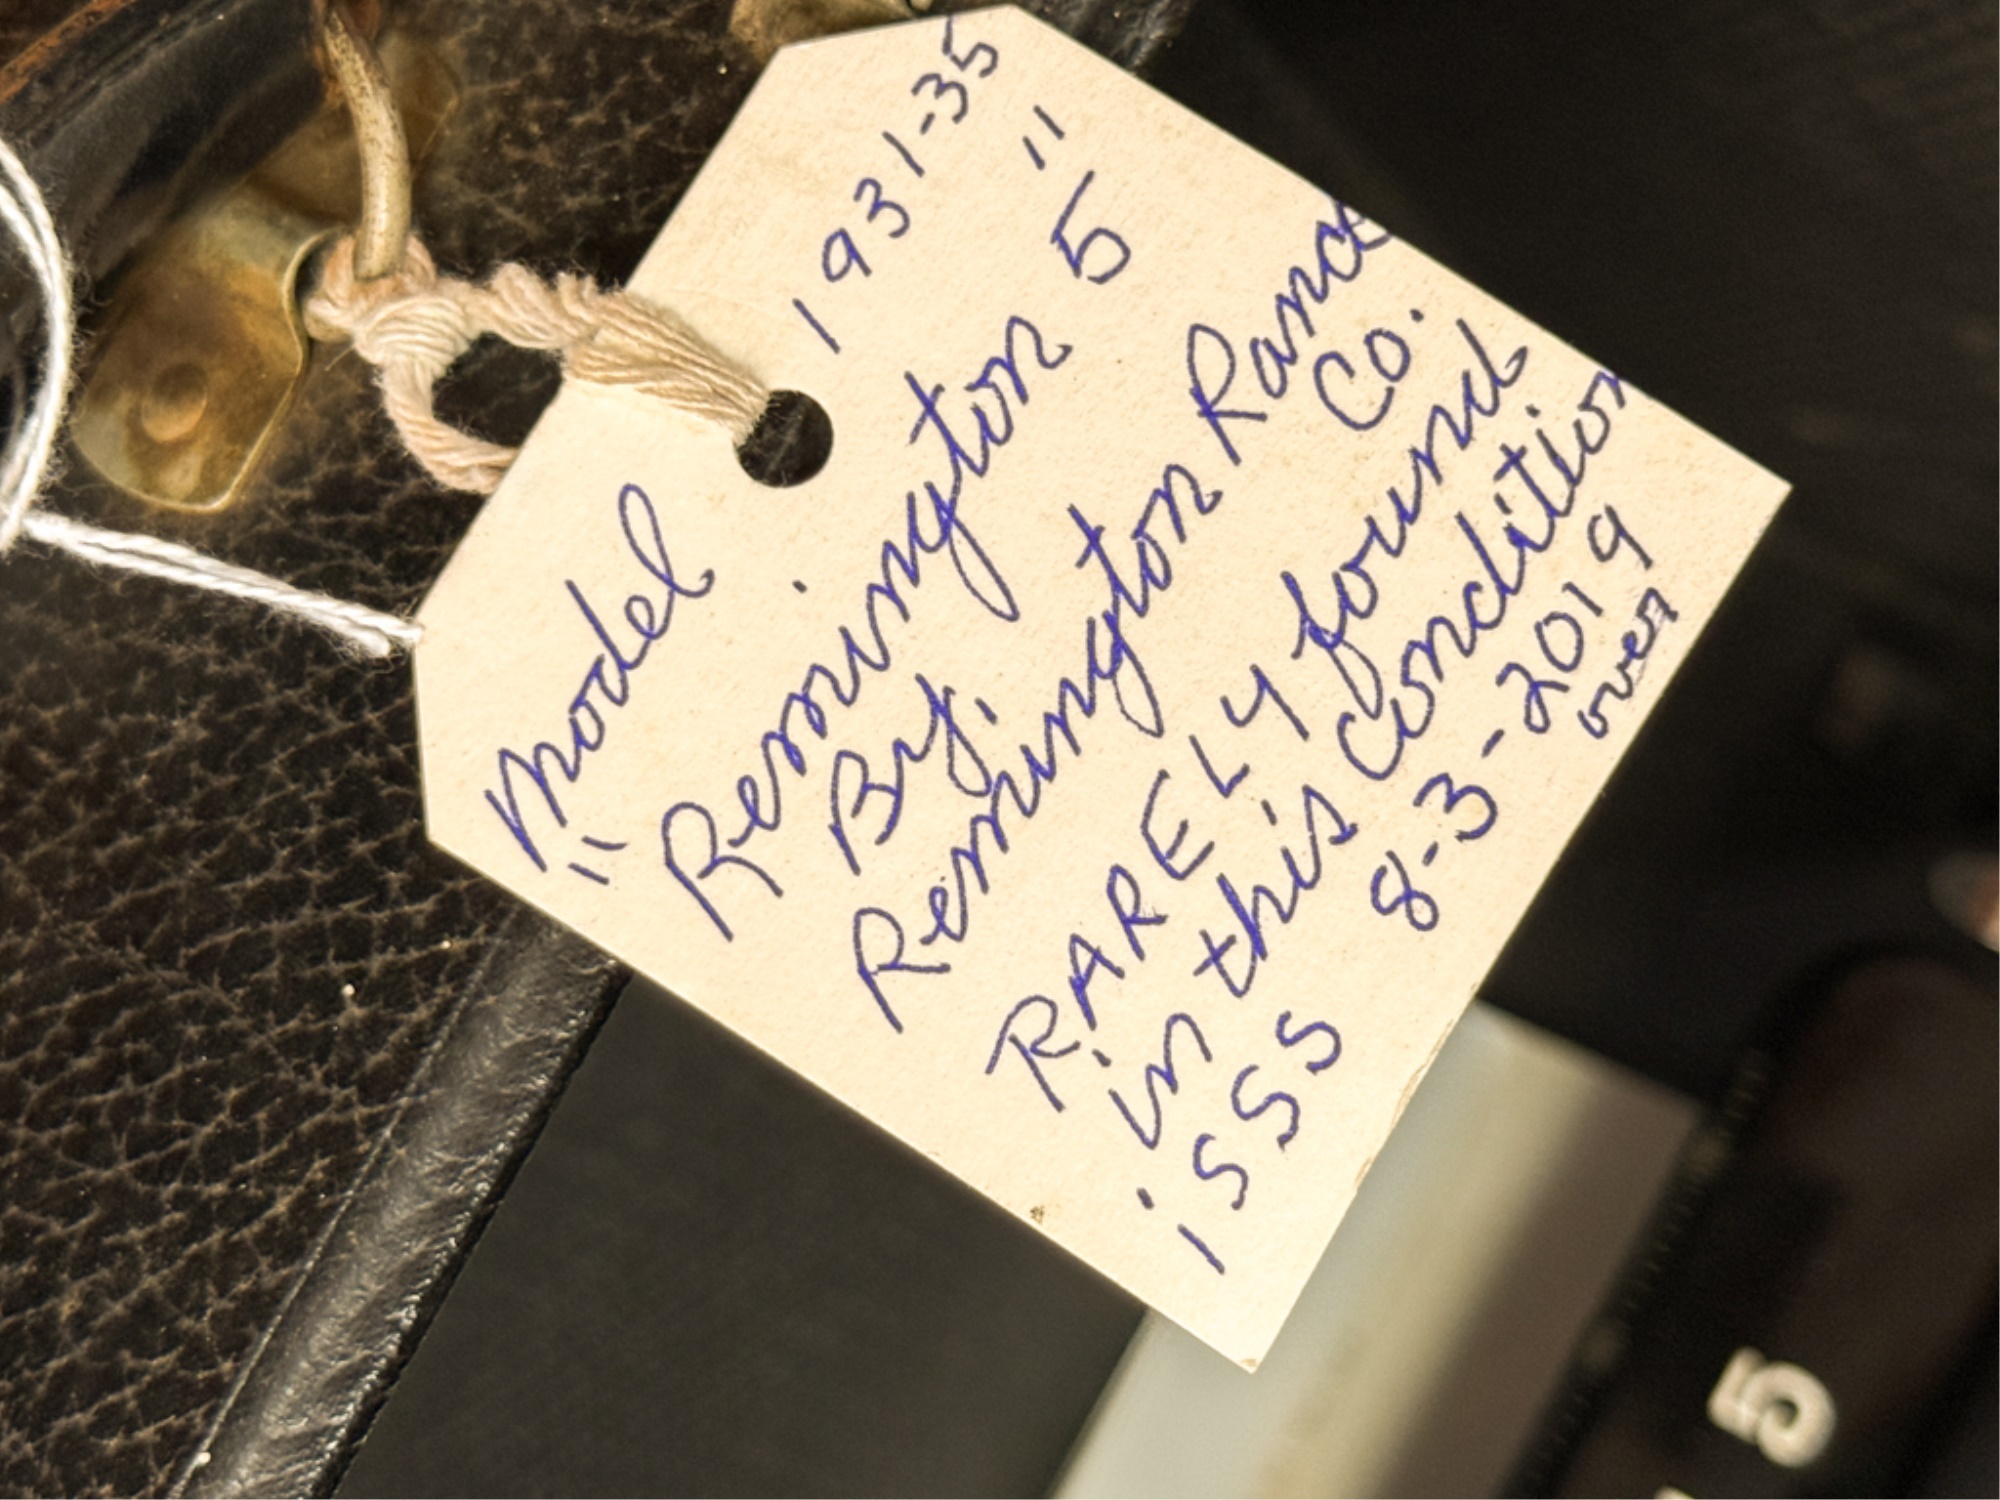 Model 1931-35
"Remington 5"
By.
Remington Rand
Co.
RARELY found
in this condition
iSSS 8-3-2019
over
5